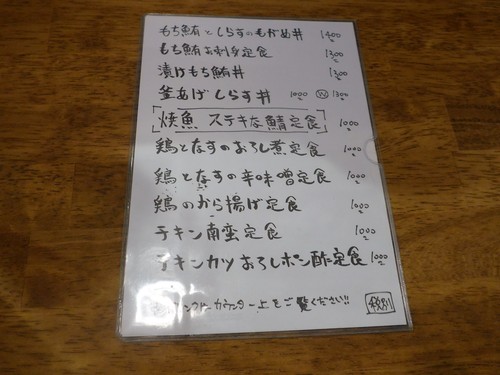 もち鮪としらすのもかめ丼 1400
もち鮪お刺身定食 1300
漬けもち鮪丼 1300
釜あげしらす丼 1000 Ⓦ 1300
焼魚 ステキな鯖定食 1000
鶏となすのおろし煮定食 1000
鶏となすの辛味噌定食 1000
鶏のから揚げ定食 1000
チキン南蛮定食 1000
チキンカツおろしポン酢定食 1000
カウンター上をご覧ください!!
税別